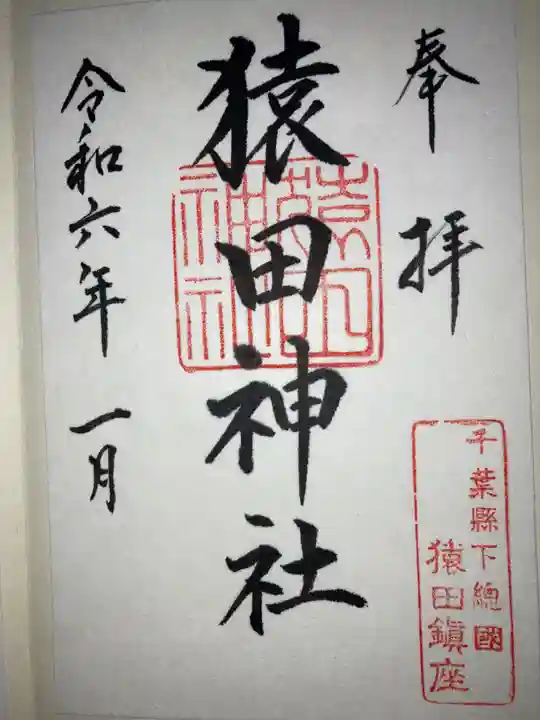 奉拝
猿田神社
令和六年一月
千葉縣下總國
猿田鎭座